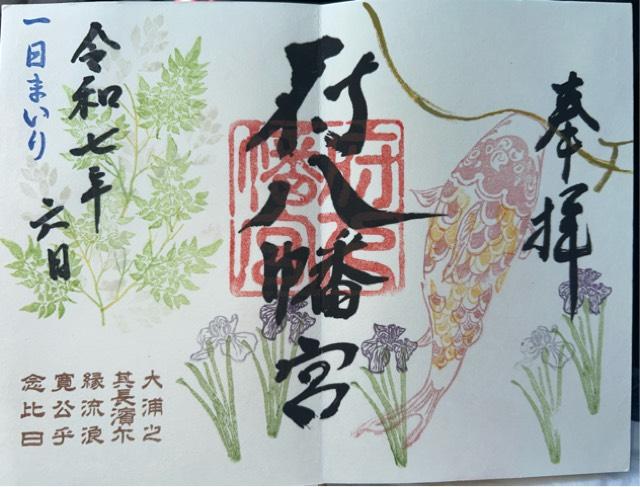 奉拝
府八幡宮
府八
幡宮
令和七年
六月
一日まいり
大浦之
其長濱尓
縁流浪
寛公乎
念比日